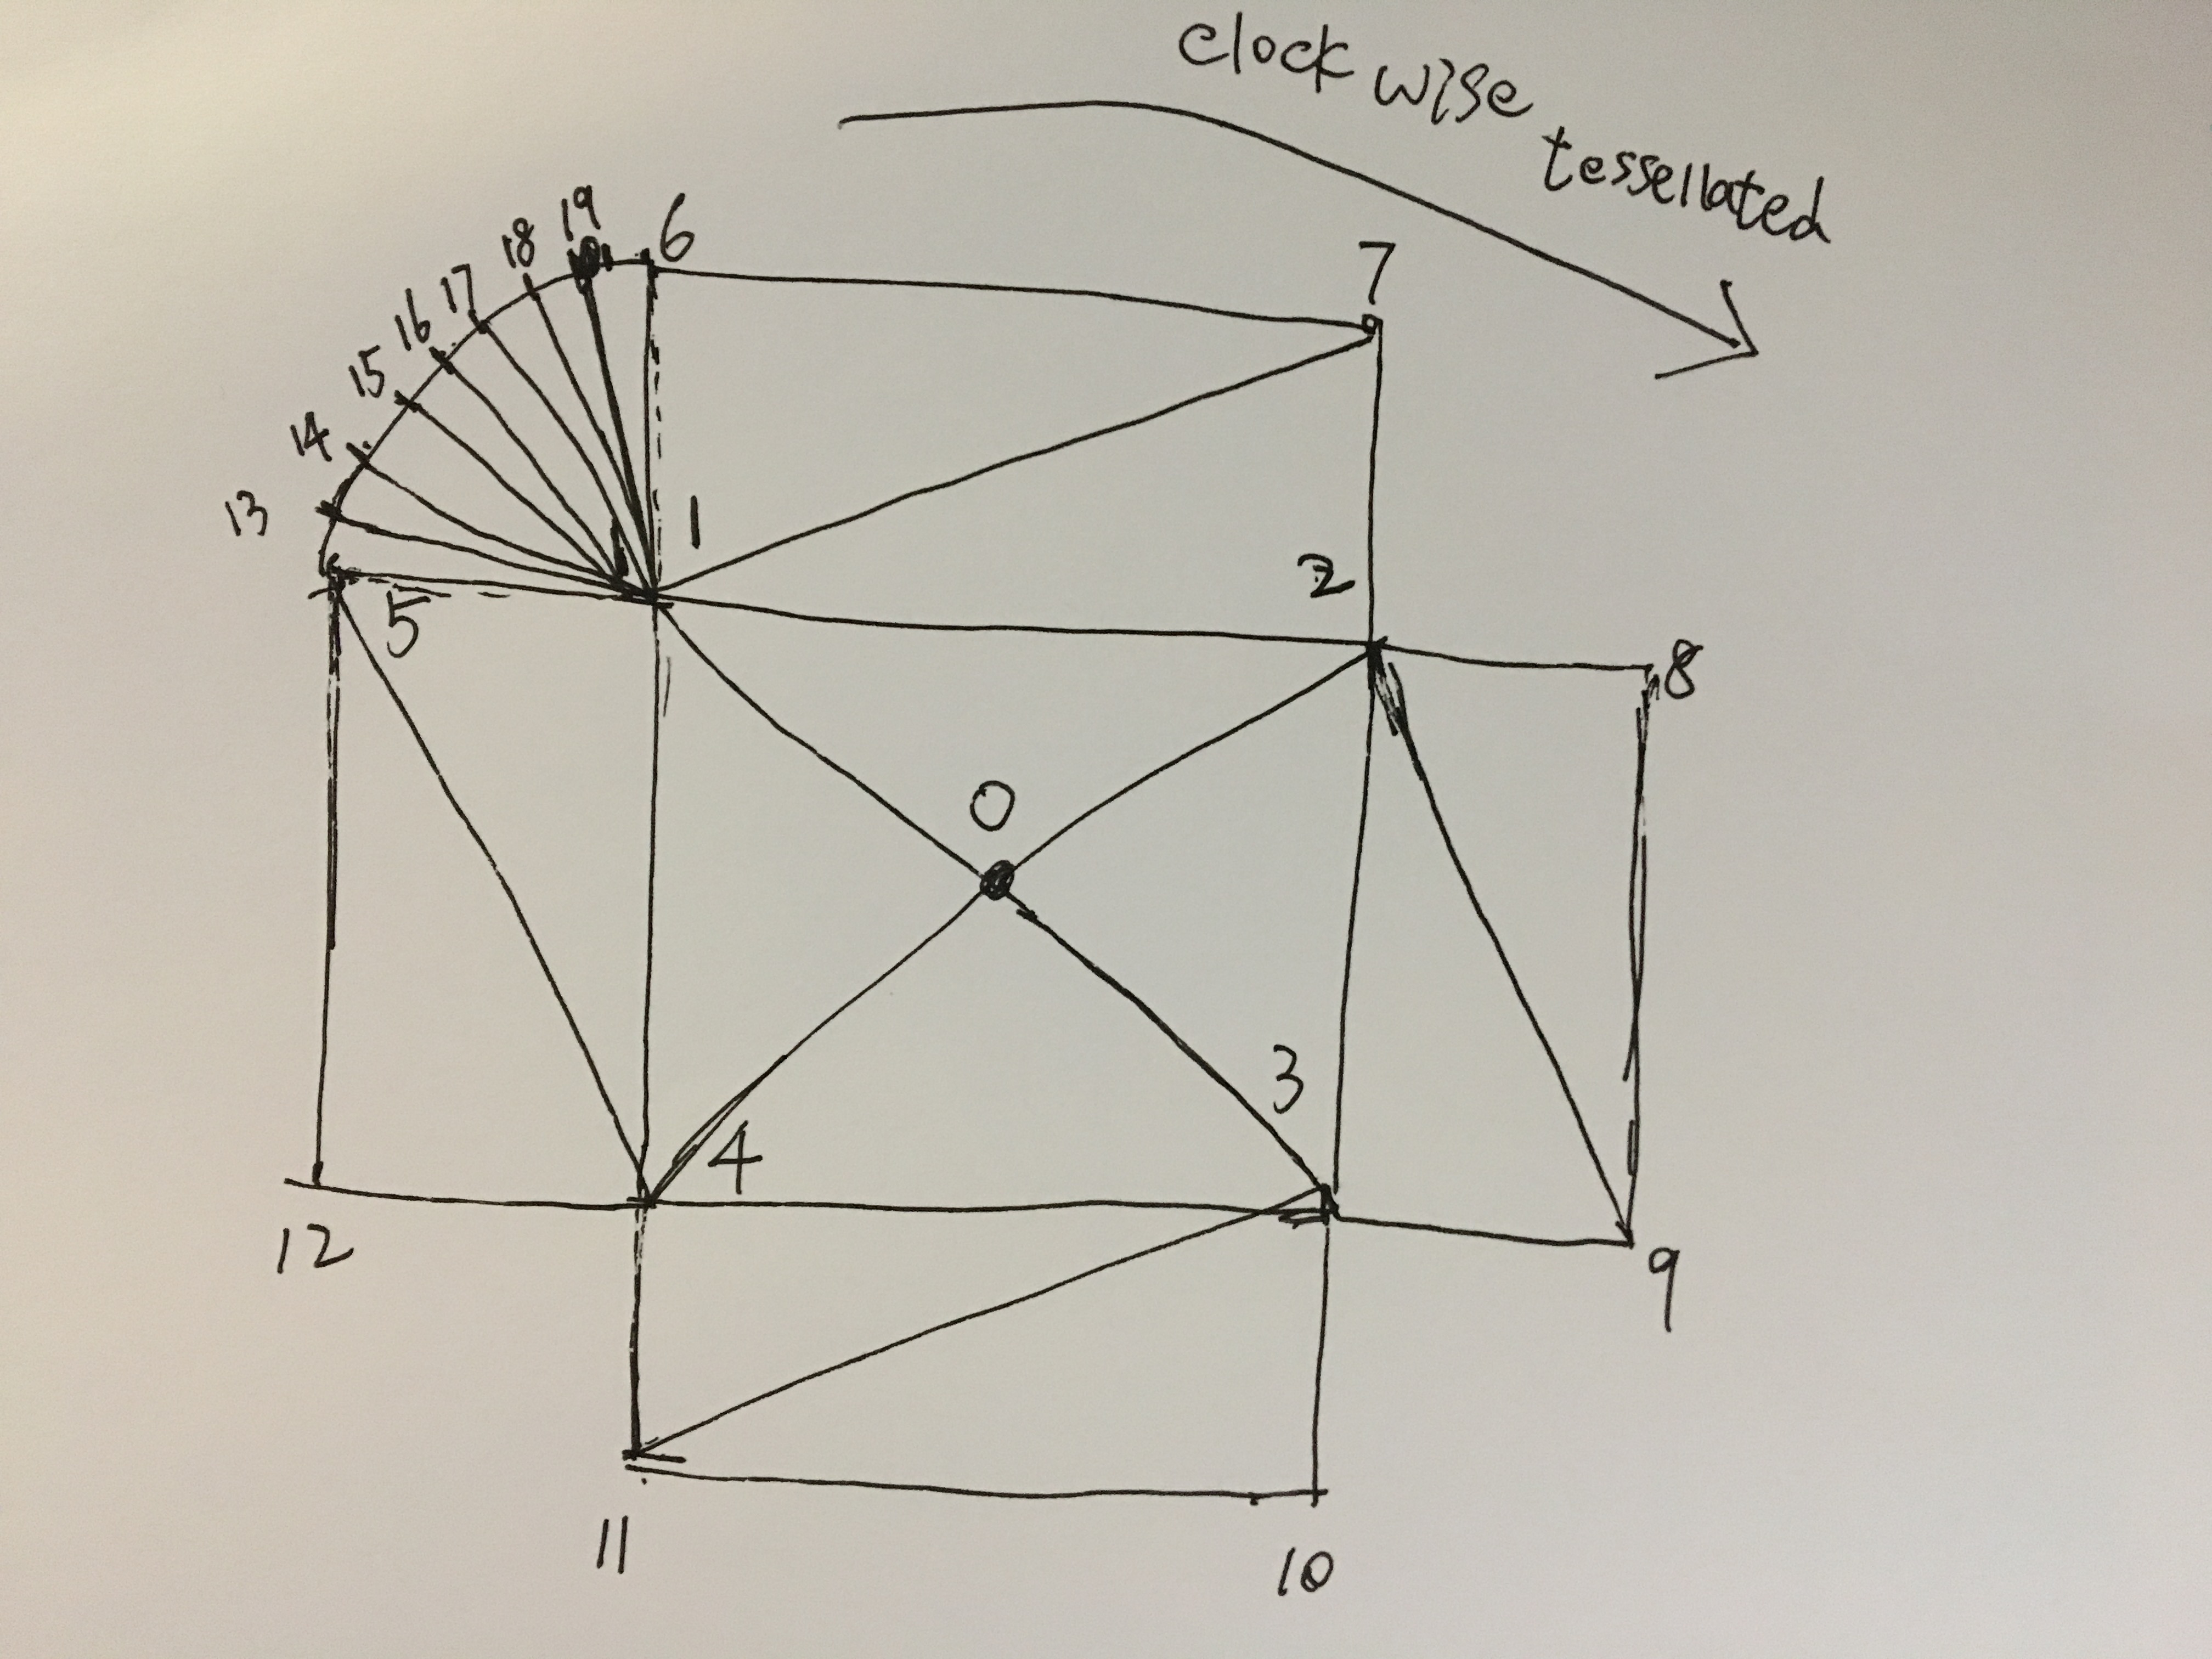 clockwise
tessellated
19
6
18
7
17
16
15
14
13
1
2
5
8
0
3
4
12
9
11
10